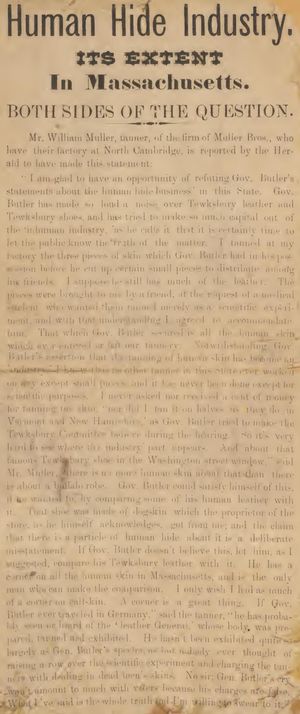 Human Hide Industry.
ITS EXTENT
In Massachusetts.
BOTH SIDES OF THE QUESTION.
Mr. William Muller, tanner, of the firm of Muller Bros., who
have their factory at North Cambridge, is reported by the Her-
ald to have made this statement:
"I am glad to have an opportunity of refuting Gov. Butler's
statements about the human hide business in this State. Gov.
Butler has made so loud a noise over Tewksbury leather and
Tewksbury shoes, and has tried to make so much capital out of
the 'inhuman industry,' as he calls it that it is certainly time to
let the public know the truth of the matter. I tanned at my
factory the three pieces of skin which Gov. Butler had in his pos-
session before he cut up certain small pieces to distribute among
his friends. I suppose he still has much of the leather. The
pieces were brought to me by a friend, at the request of a medical
student who wanted them tanned merely as a scientific experi-
ment, and with that understanding I agreed to
tion. That which Gov. Butler secured is all the human skin
which ever entered or left our tannery. Notwithstanding Gov.
Butler's assertion that the tanning of human skin has become an
industry, I know that no other tanner in this State ever worked
on any except small pieces, and it has never been done except for
scientific purposes. I never asked nor received a cent of money
for tanning the skin, nor did I tan it on halves as they do in
Vermont and New Hampshire, as Gov. Butler tried to make the
Tewksbury Committee believe during the hearing. So it's very
hard to see where the industry part appears. And about that
famous Tewksbury shoe in the Washington street window," said
Mr. Muller, "there is no more human skin about that than there
is about a buffalo robe. Gov. Butler could satisfy himself of this,
if he wanted to, by comparing some of his human leather with
it. That shoe was made of dogskin which the proprietor of the
store, as he himself acknowledges, got from me; and the claim
that there is a particle of human hide about it is a deliberate
misstatement. If Gov. Butler doesn't believe this, let him, as I
suggested, compare his Tewksbury leather with it. He has a
corner on all the human skin in Massachusetts, and is the only
man who can make the comparison. I only wish I had as much
of a corner on calf-skin. A corner is a great thing. If Gov.
Butler ever traveled in Germany," said the tanner, "he has proba-
bly seen or heard of the 'leather General,' whose body was pre-
pared, tanned and exhibited. He hasn't been exhibited quite so
largely as Gen. Butler's species, as but nobody ever thought of
raising a row over this scientific experiment and charging the tan-
ners with dealing in dead men's skins. No sir; Gen. Butler's cry
won't amount to much with voters because his charges are false.
What I've said is the whole truth and I'm willing to swear to it."